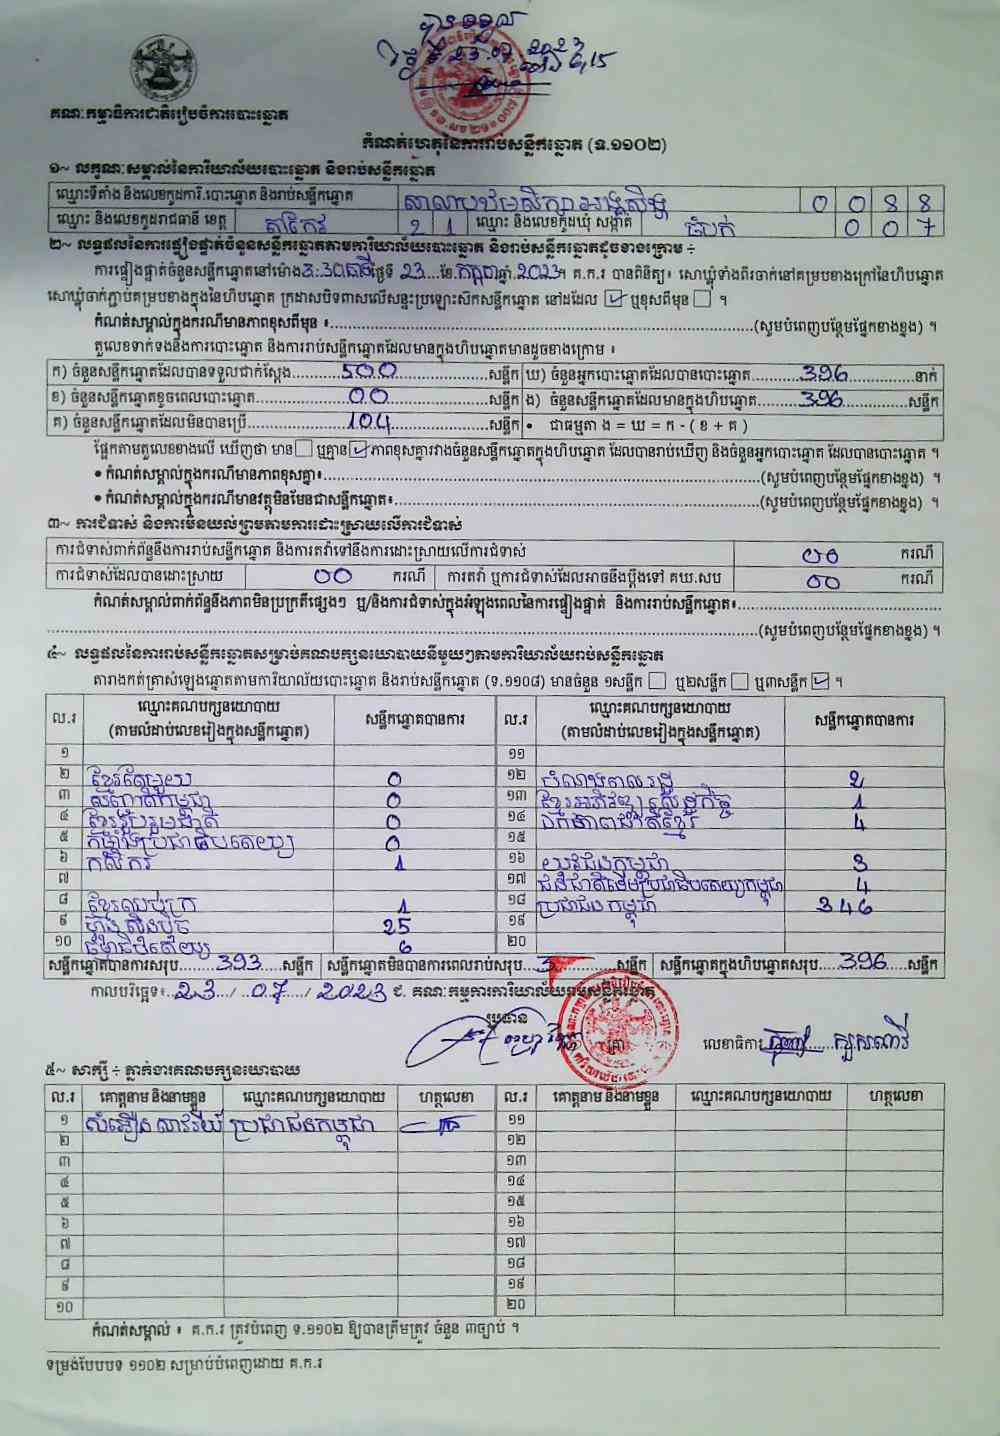 បានទទួល
ថ្ងៃទី 23.07.2023
ម៉ោង 6,15
គណៈកម្មាធិការជាតិរៀបចំការបោះឆ្នោត
កំណត់ហេតុនៃការរាប់សន្លឹកឆ្នោត (ទ.១១០២)
១~ លក្ខណៈសម្គាល់នៃការិយាល័យបោះឆ្នោត និងរាប់សន្លឹកឆ្នោត
ឈ្មោះទីតាំង និងលេខកូដការិ.បោះឆ្នោត និងរាប់សន្លឹកឆ្នោត សាលាបឋមសិក្សាអង្គស៊ីម្ល 0 0 8 8
ឈ្មោះ និងលេខកូដរាជធានី ខេត្ត តាកែវ 2 1 ឈ្មោះ និងលេខកូដឃុំ សង្កាត់ ចំបក់ 0 0 7
២~ លទ្ធផលនៃការផ្ទៀងផ្ទាត់ចំនួនសន្លឹកឆ្នោតតាមការិយាល័យបោះឆ្នោត និងរាប់សន្លឹកឆ្នោតដូចខាងក្រោម ÷
ការផ្ទៀងផ្ទាត់ចំនួនសន្លឹកឆ្នោតនៅម៉ោង 3:30នាទី ថ្ងៃទី 23 ខែ.កក្កដា ឆ្នាំ.2023។ គ.ក.រ បានពិនិត្យ៖ សោឃ្លុំទាំងពីរចាក់នៅគម្របខាងក្រៅនៃហិបឆ្នោត
សោឃ្លុំចាក់ភ្ជាប់គម្របខាងក្នុងនៃហិបឆ្នោត ក្រដាសបិទពាសលើសន្ទះប្រឡោះស៊កសន្លឹកឆ្នោត នៅដដែល ☑ ឬខុសពីមុន ☐ ។
កំណត់សម្គាល់ក្នុងករណីមានភាពខុសពីមុន ៖ (សូមបំពេញបន្ថែមផ្នែកខាងខ្នង) ។
តួលេខទាក់ទងនឹងការបោះឆ្នោត និងការរាប់សន្លឹកឆ្នោតដែលមានក្នុងហិបឆ្នោតមានដូចខាងក្រោម ៖
ក) ចំនួនសន្លឹកឆ្នោតដែលបានទទួលជាក់ស្តែង 500 សន្លឹក ឃ) ចំនួនអ្នកបោះឆ្នោតដែលបានបោះឆ្នោត 396 នាក់
ខ) ចំនួនសន្លឹកឆ្នោតខូចពេលបោះឆ្នោត 00 សន្លឹក ង) ចំនួនសន្លឹកឆ្នោតដែលមានក្នុងហិបឆ្នោត 396 សន្លឹក
គ) ចំនួនសន្លឹកឆ្នោតដែលមិនបានប្រើ 104 សន្លឹក • ជាធម្មតា ង = ឃ = ក - ( ខ + គ )
ផ្អែកតាមតួលេខខាងលើ ឃើញថា មាន ☐ ឬគ្មាន ☑ ភាពខុសគ្នារវាងចំនួនសន្លឹកឆ្នោតក្នុងហិបឆ្នោត ដែលបានរាប់ឃើញ និងចំនួនអ្នកបោះឆ្នោត ដែលបានបោះឆ្នោត ។
• កំណត់សម្គាល់ក្នុងករណីមានភាពខុសគ្នា៖ (សូមបំពេញបន្ថែមផ្នែកខាងខ្នង) ។
• កំណត់សម្គាល់ក្នុងករណីមានវត្ថុមិនមែនជាសន្លឹកឆ្នោត៖ (សូមបំពេញបន្ថែមផ្នែកខាងខ្នង) ។
៣~ ការជំទាស់ និងការមិនយល់ព្រមតាមការដោះស្រាយលើការជំទាស់
ការជំទាស់ពាក់ព័ន្ធនឹងការរាប់សន្លឹកឆ្នោត និងការតវ៉ាទៅនឹងការដោះស្រាយលើការជំទាស់ 00 ករណី
ការជំទាស់ដែលបានដោះស្រាយ 00 ករណី ការតវ៉ា ឬការជំទាស់ដែលអាចនឹងប្តឹងទៅ គឃ.សប 00 ករណី
កំណត់សម្គាល់ពាក់ព័ន្ធនឹងភាពមិនប្រក្រតីផ្សេងៗ ឬ/និងការជំទាស់ក្នុងអំឡុងពេលនៃការផ្ទៀងផ្ទាត់ និងការរាប់សន្លឹកឆ្នោត៖
(សូមបំពេញបន្ថែមផ្នែកខាងខ្នង) ។
៤~ លទ្ធផលនៃការរាប់សន្លឹកឆ្នោតសម្រាប់គណបក្សនយោបាយនីមួយៗតាមការិយាល័យរាប់សន្លឹកឆ្នោត
តារាងកត់ត្រាសំឡេងឆ្នោតតាមការិយាល័យបោះឆ្នោត និងរាប់សន្លឹកឆ្នោត (ទ.១១០៨) មានចំនួន ១សន្លឹក ☐ ឬ២សន្លឹក ☐ ឬ៣សន្លឹក ☑ ។
ល.រ ឈ្មោះគណបក្សនយោបាយ (តាមលំដាប់លេខរៀងក្នុងសន្លឹកឆ្នោត) សន្លឹកឆ្នោតបានការ ល.រ ឈ្មោះគណបក្សនយោបាយ (តាមលំដាប់លេខរៀងក្នុងសន្លឹកឆ្នោត) សន្លឹកឆ្នោតបានការ
១ ១១
២ ខ្មែរតែមួយ 0 ១២ សំណងតាលរដ្ឋ 2
៣ សញ្ជាតិកម្ពុជា 0 ១៣ ខ្មែរអភិវឌ្ឍន៍សេដ្ឋកិច្ច 1
៤ ខ្មែររួបរួមជាតិ 0 ១៤ ឯកភាពជាតិខ្មែរ 4
៥ កម្លាំងប្រជាធិបតេយ្យ 0 ១៥
៦ កសិករ 1 ១៦ យុវជនកម្ពុជា 3
៧ ១៧ ជនជាតិដើមប្រជាធិបតេយ្យកម្ពុជា 4
៨ ខ្មែរឈប់ក្រ 1 ១៨ ប្រជាជនកម្ពុជា 346
៩ ហ្វ៊ុនស៊ិនប៉ិច 25 ១៩
១០ ធម្មាធិបតេយ្យ 6 ២០
សន្លឹកឆ្នោតបានការសរុប 393 សន្លឹក សន្លឹកឆ្នោតមិនបានការពេលរាប់សរុប 3 សន្លឹក សន្លឹកឆ្នោតក្នុងហិបឆ្នោតសរុប 396 សន្លឹក
កាលបរិច្ឆេទ៖ 23 / 07 / 2023 ជ. គណៈកម្មការការិយាល័យរាប់សន្លឹកឆ្នោត
ប្រធាន
លេខាធិការ សួសណាវី
៥~ សាក្សី ÷ ភ្នាក់ងារគណបក្សនយោបាយ
ល.រ គោត្តនាម និងនាមខ្លួន ឈ្មោះគណបក្សនយោបាយ ហត្ថលេខា ល.រ គោត្តនាម និងនាមខ្លួន ឈ្មោះគណបក្សនយោបាយ ហត្ថលេខា
១ សំអឿន សាវរីយ៍ ប្រជាជនកម្ពុជា ១១
២ ១២
៣ ១៣
៤ ១៤
៥ ១៥
៦ ១៦
៧ ១៧
៨ ១៨
៩ ១៩
១០ ២០
កំណត់សម្គាល់ ៖ គ.ក.រ ត្រូវបំពេញ ទ.១១០២ ឱ្យបានត្រឹមត្រូវ ចំនួន ៣ច្បាប់ ។
ទម្រង់បែបបទ ១១០២ សម្រាប់បំពេញដោយ គ.ក.រ